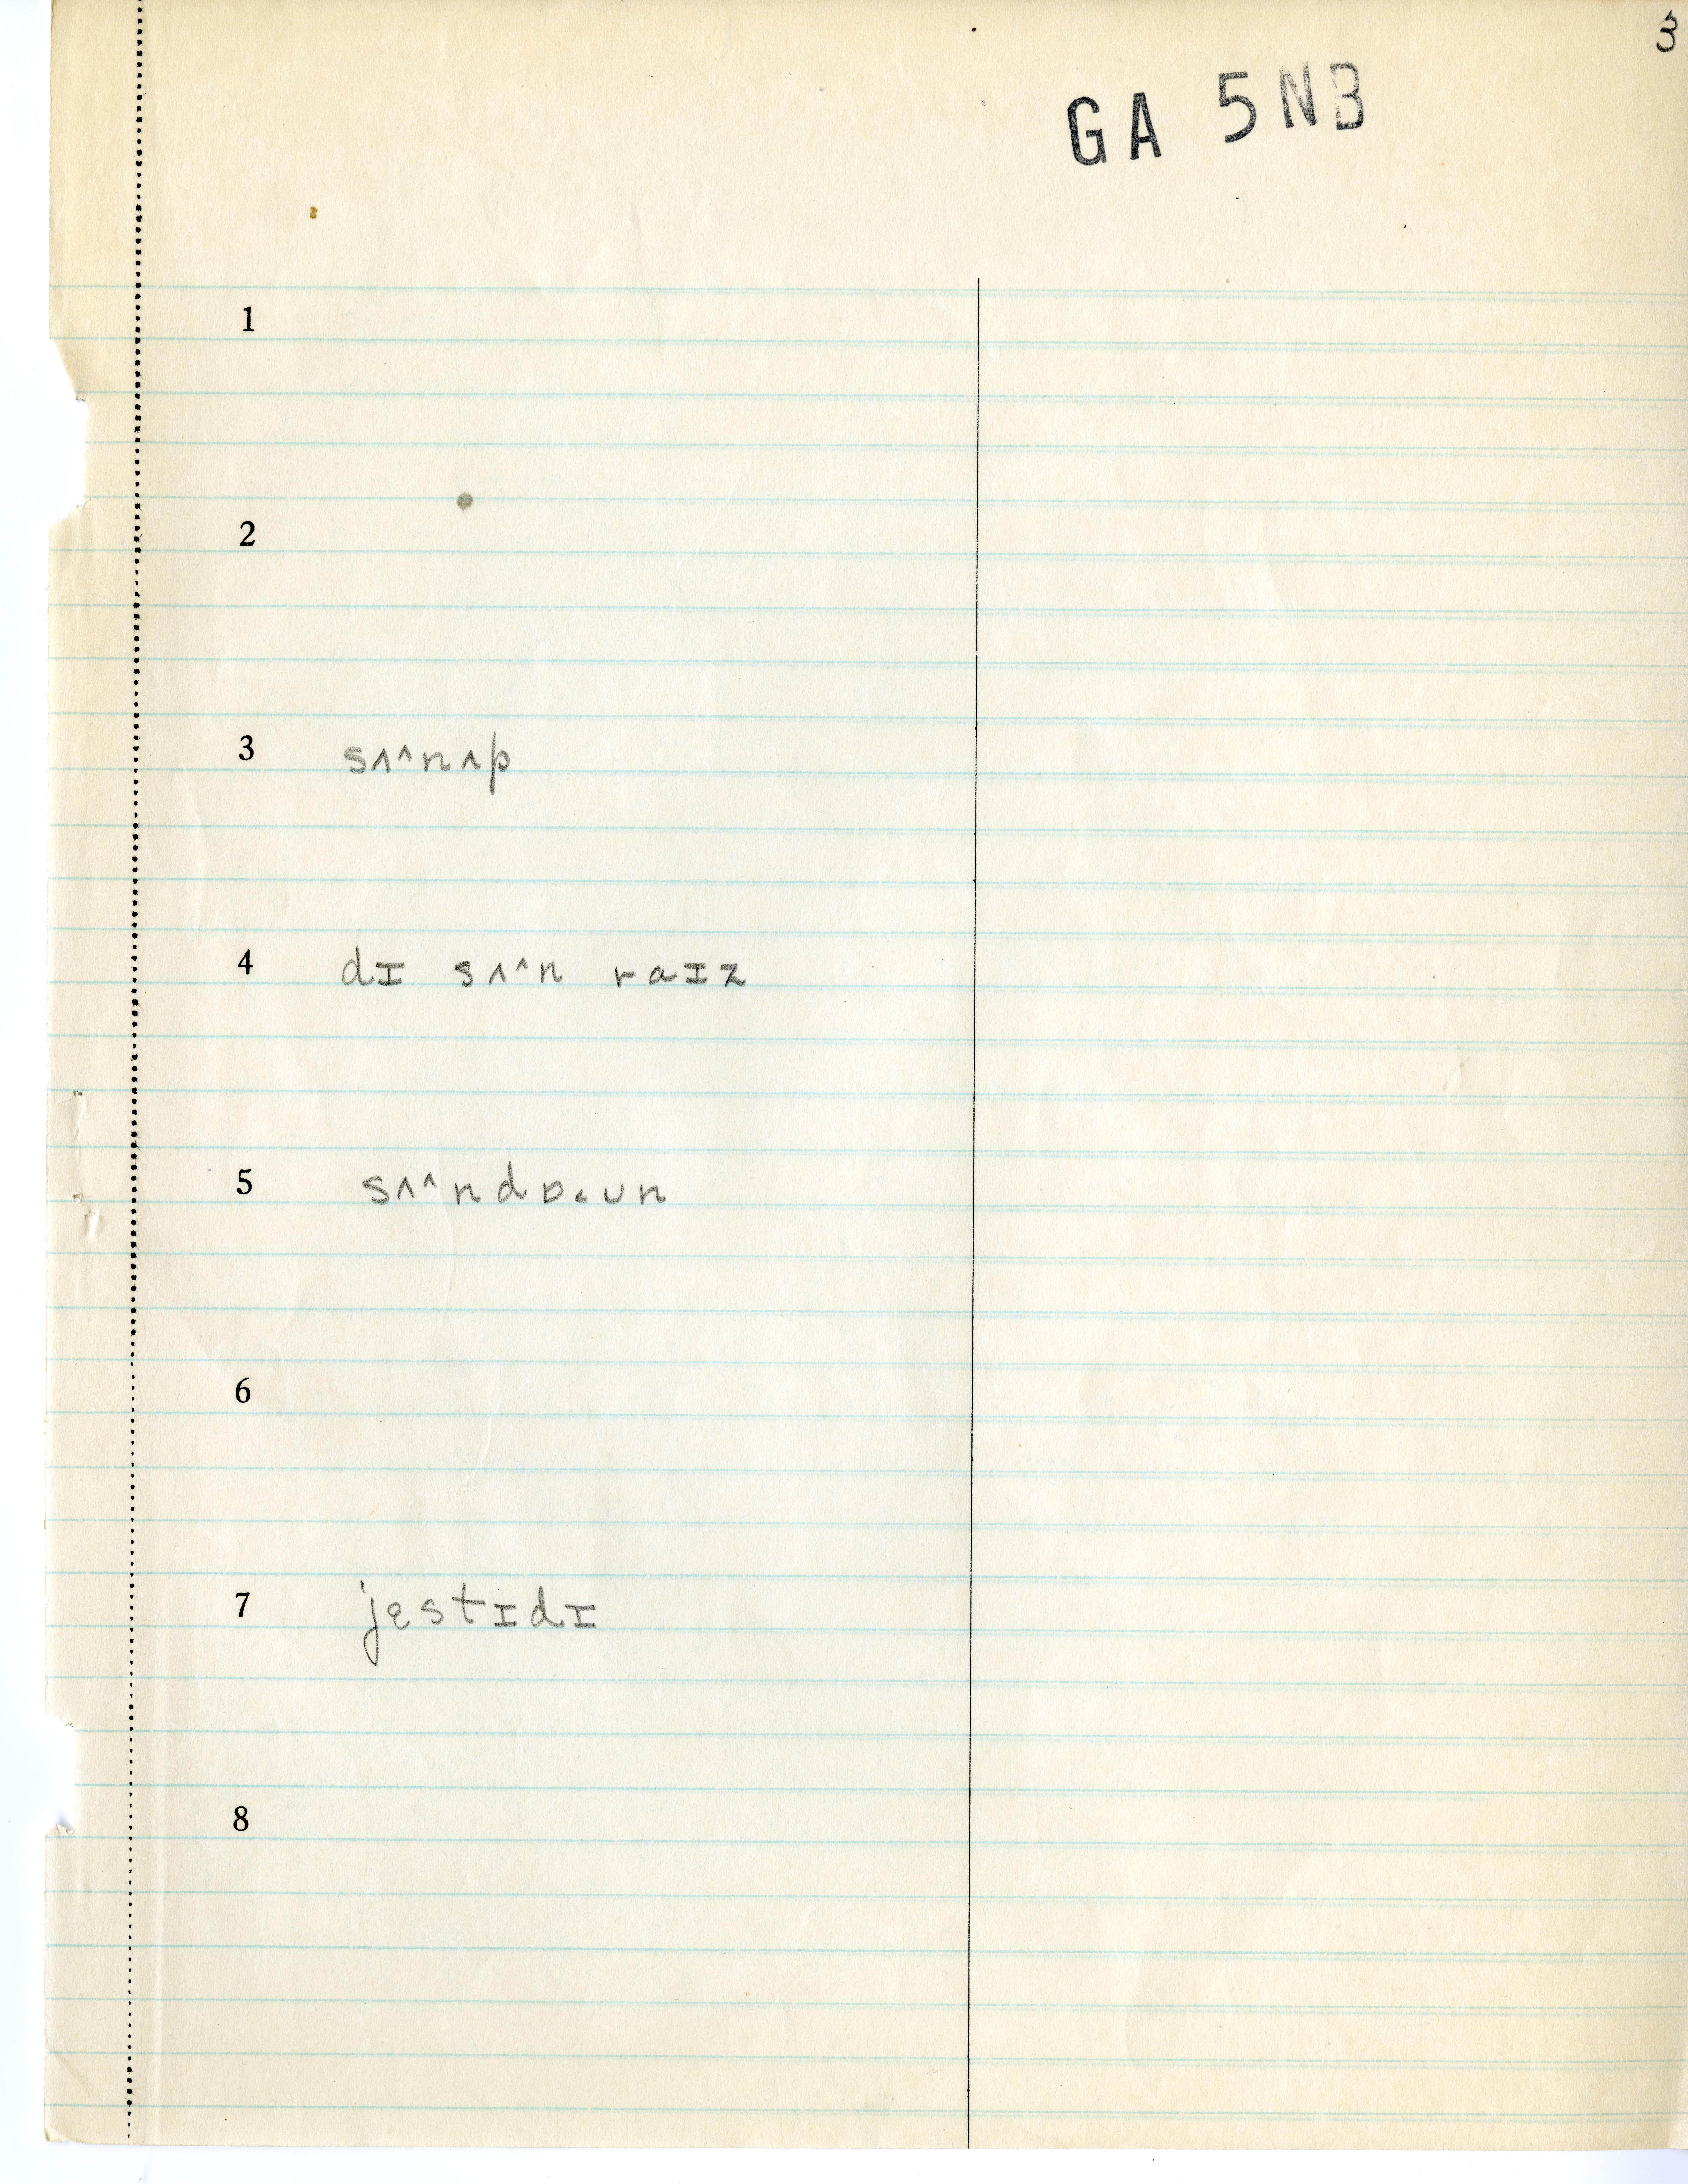 3
GA 5NB
1
2
3 sʌ^nʌp
4 dɪ sʌ^n raɪz
5 sʌ^ndɒ˂ʊn
6
7 jɛstɪdɪ
8